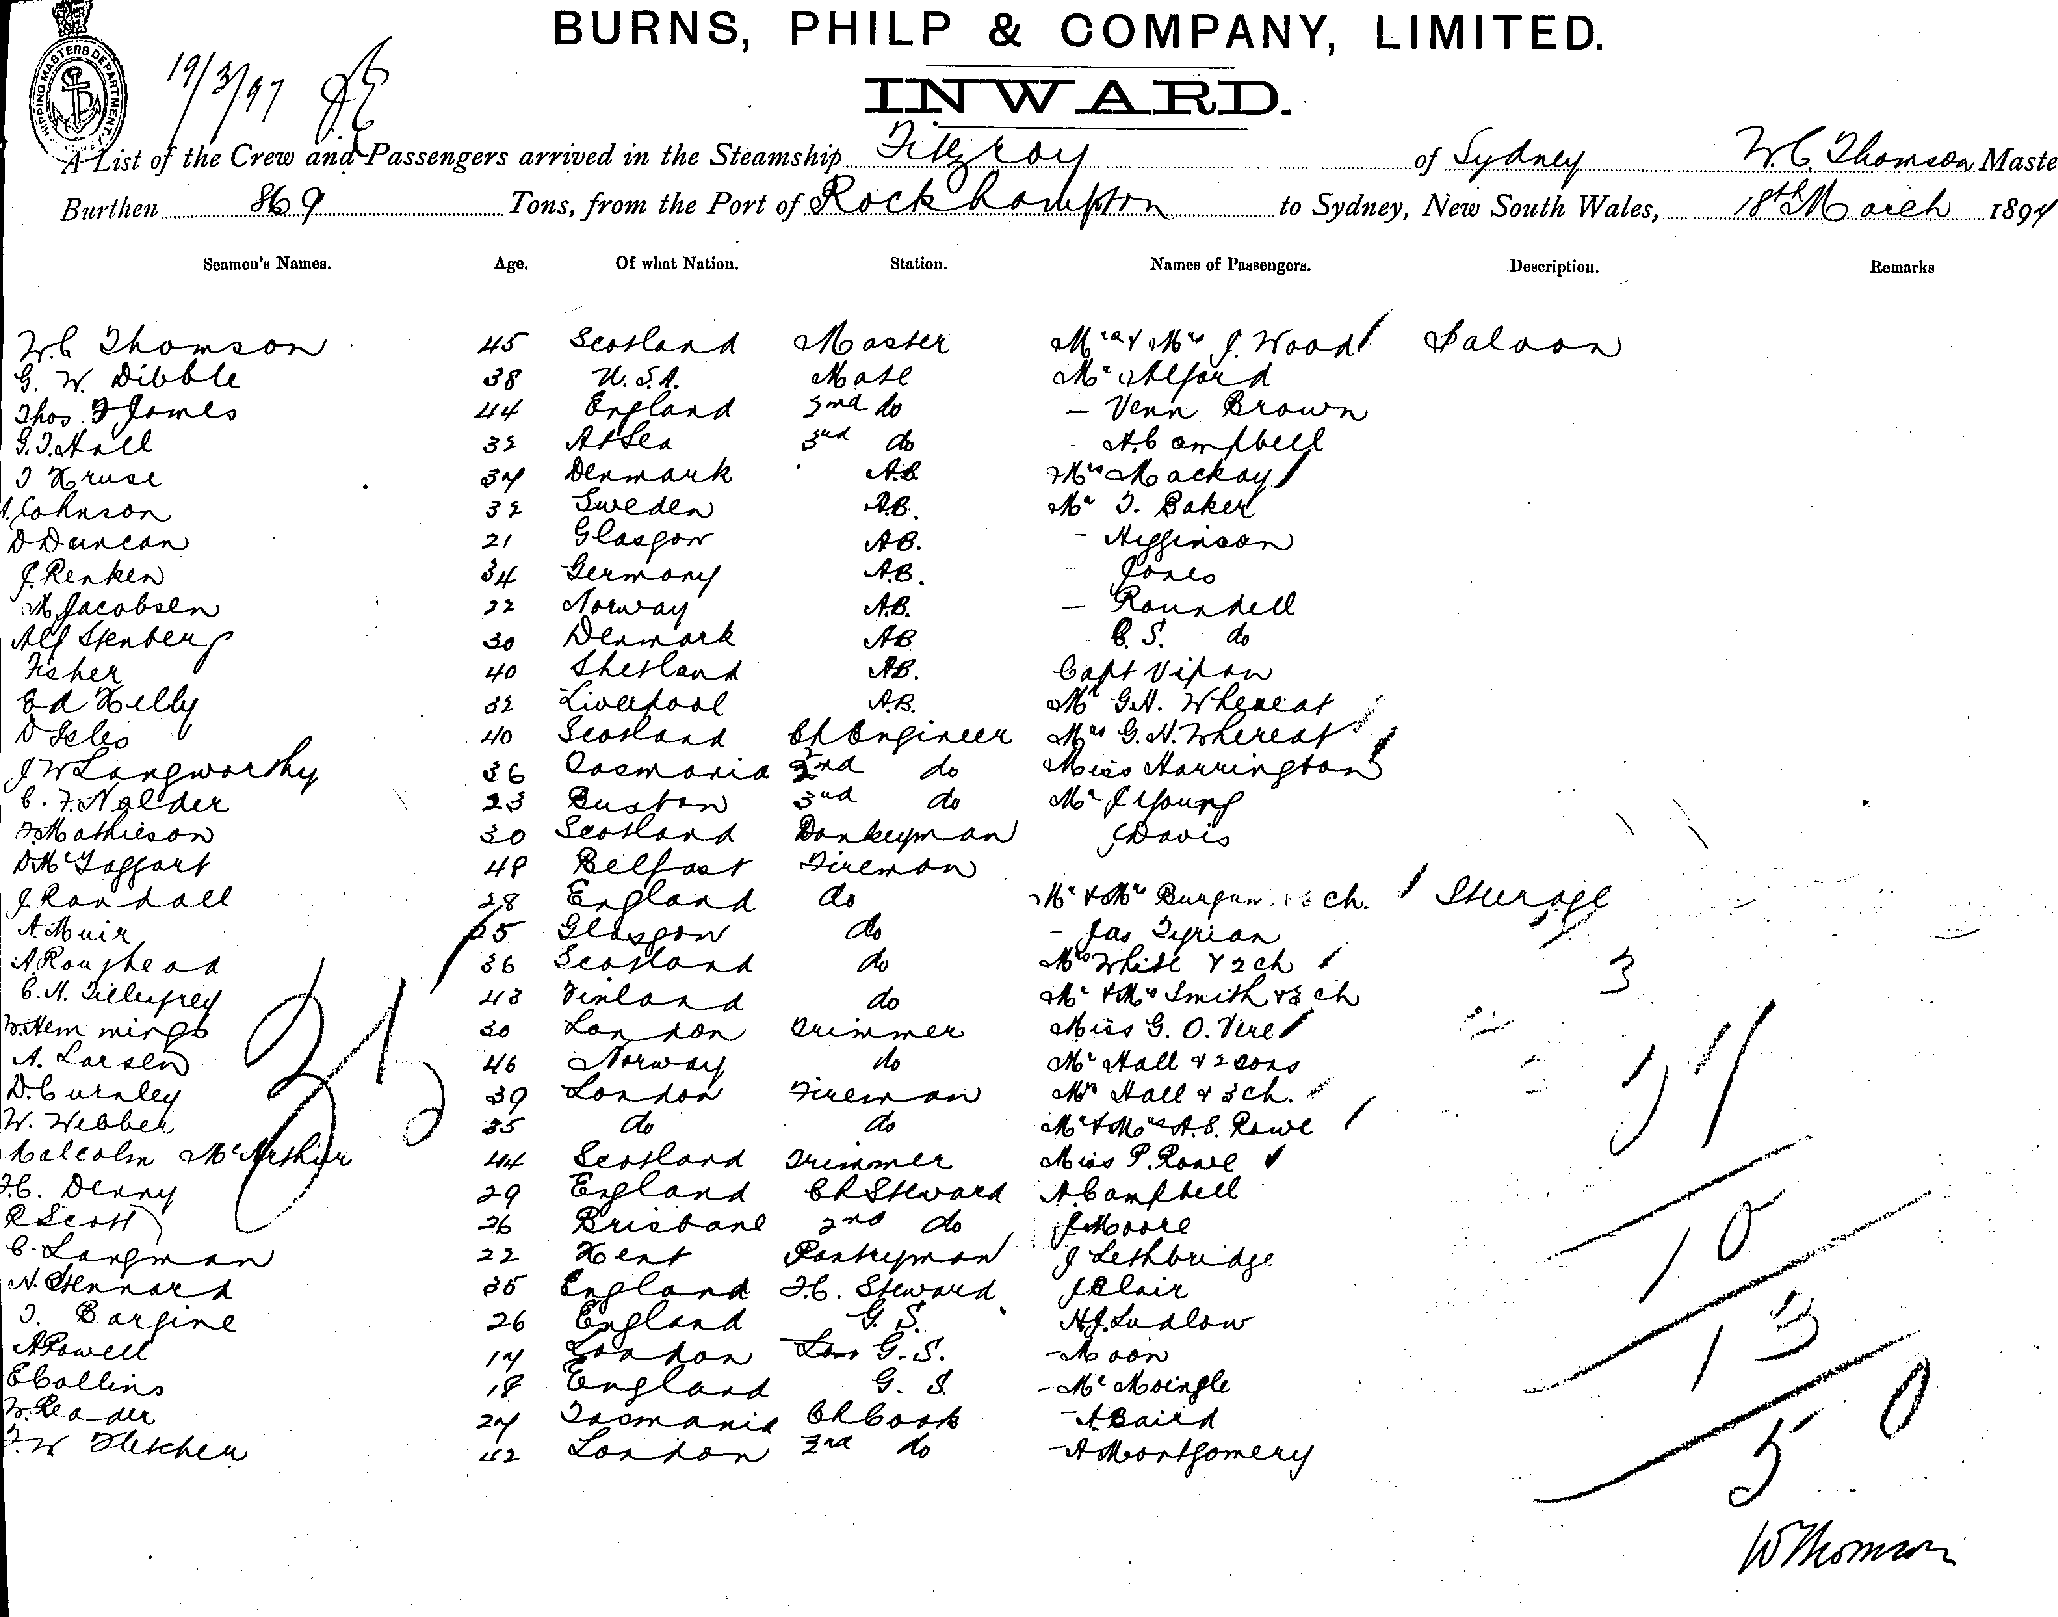 BURNS, PHILP & COMPANY, LIMITED.
INWARD.
19/3/97
A List of the Crew and Passengers arrived in the Steamship Fitzroy of Sydney W.C. Thomson Maste
Burthen 869 Tons, from the Port of Rockhampton to Sydney, New South Wales, 18th March 1897
Seamen's Names. Age. Of what Nation. Station. Names of Passengers. Description. Remarks
W.C Thomson 45 Scotland Master J. Wood Saloon
G. W. Dibble 38 U.S.A. Mate Mr Alford
Thos. F James 44 England 2nd do — Venn Brown
G.T. Hall 32 At Sea 3rd do A. Campbell
T Kruse 37 Denmark A.B. Mrs Mackay
Johnson 32 Sweden A.B. Mr T. Baker
D Duncan 21 Glasgow A.B. - Higginson
J. Renken 34 Germany A.B. - Jones
M Jacobsen 22 Norway A.B. — Roundell
Alf Stenberg 30 Denmark AB C. S. do
Fisher 40 Shetland A.B. Capt Vipan
Ed Kelly 32 Liverpool A.B. Mr G.H. Whereat
D 40 Scotland Ch Engineer Mrs G.H. Whereat
J W Langworthy 36 Tasmania 2nd do Miss Harrington
C. F. Nalder 23 Buston 3rd do Mr J Young
Mathieson 30 Scotland Donkeyman J Davis
D McTaggart 48 Belfast Fireman
J Randall 28 England do Mr & Mrs ch. Steerage
A. Muir 25 Glasgow do - Jas Tyrian
A Roughead 36 Scotland do Mrs White & 2 ch 3
C. H. 43 Finland do Mr & Mrs Smith & 3 ch
Hemmings 30 London Trimmer Miss G. O. Vere
A. Larsen 46 Norway do Mr Hall & 2 sons 17
D. Curnley 39 London Fireman Mrs Hall & 3 ch.
W. Webber 35 do do Mr & Mrs A. S. Rowe
35
Malcolm McArthur 44 Scotland Trimmer Miss P. Rowe
Denny 29 England Ch Steward A. Campbell
R Scott 26 Brisbane 2nd do J Moore 10
C. Langman 22 Kent Pantryman J Lethbridge
H. Stennard 35 England F.C. Steward J Blair
T. Bargine 26 England G. S. H.J. Ludlow 13
A Powell 17 London G. S. - Moon
E Collins 18 England G. S. - McMoingle
W. Reader 27 Tasmania Ch Cook - A Baird 50
F. W Fletcher 42 London 2nd do - A Montgomery
W Thomson